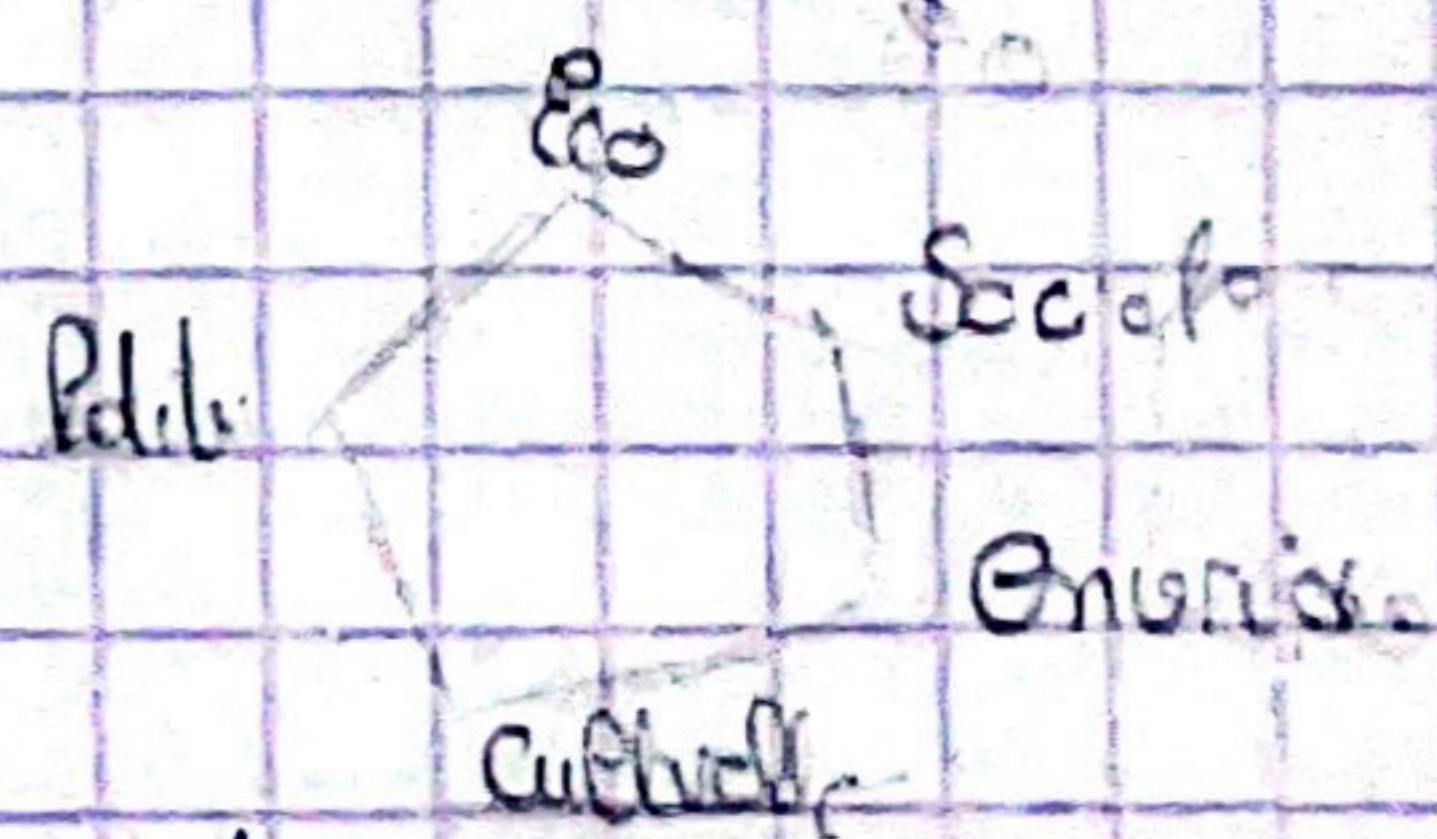 Eco
Sociale
Politi
Environ.
Culturelle